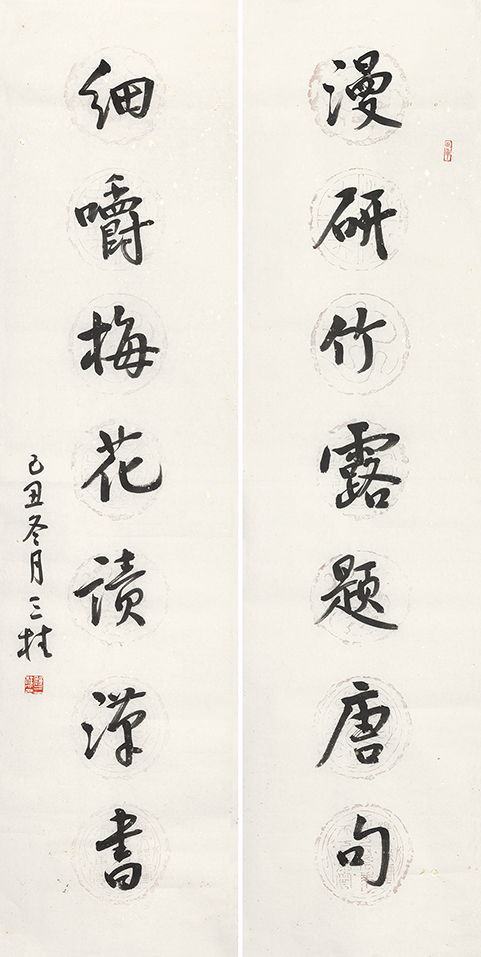 漫研竹露題唐句
細嚼梅花讀漢書
己丑冬月三桂